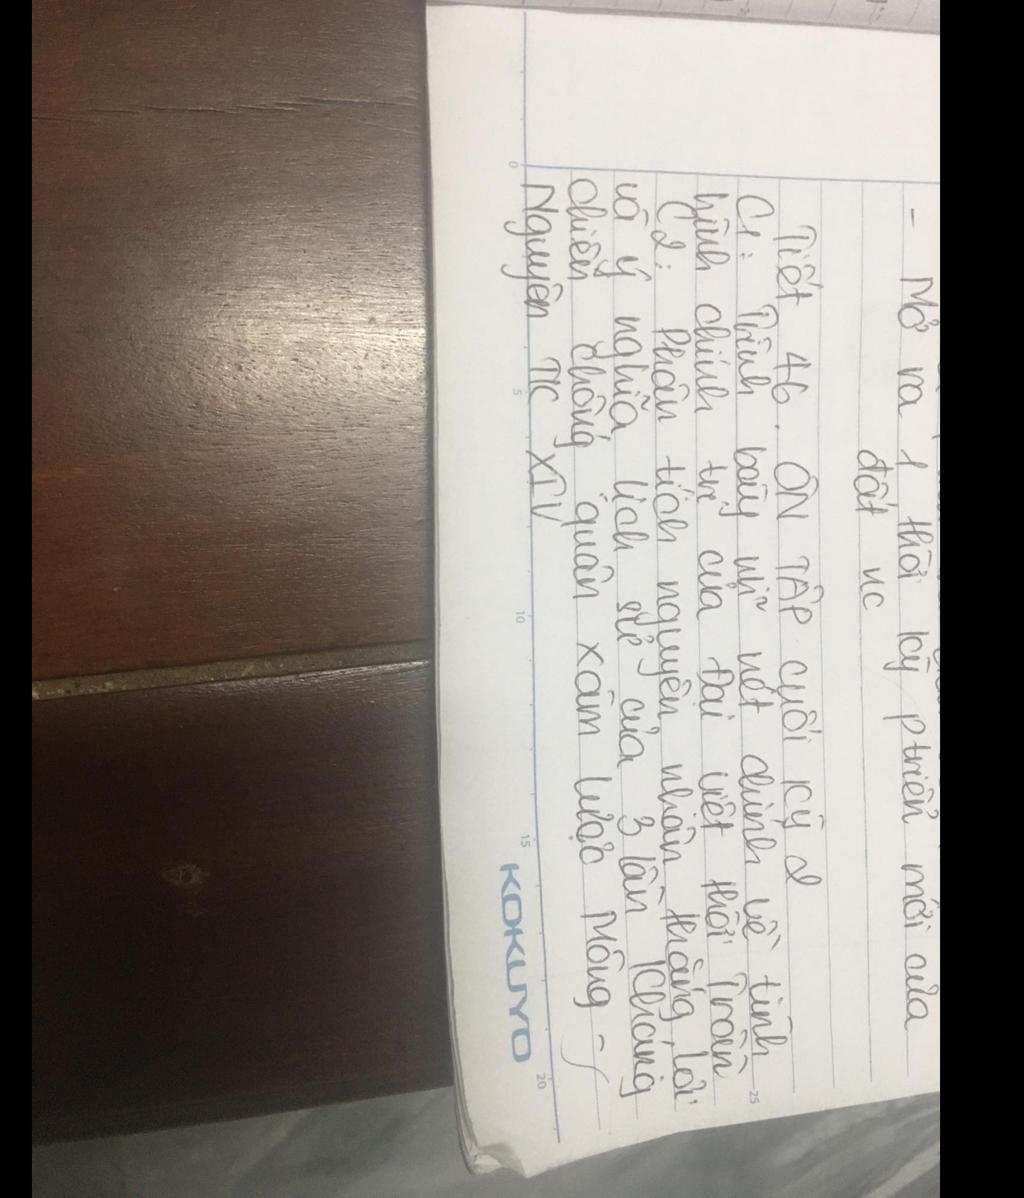 - Mở ra 1 thời kỳ ptriển mới của
đất nc
Tiết 46. ÔN TẬP CUỐI KỲ 2
C1: Trình bày nh~ nét chính về tình
hình chính trị của Đại Việt thời Trần
C2: Phân tích nguyên nhân thắng lợi
và ý nghĩa lịch sử của 3 lần kháng
chiến chống quân xâm lược Mông -
Nguyên TK XIV
0 5 10 15 20
25
KOKUYO